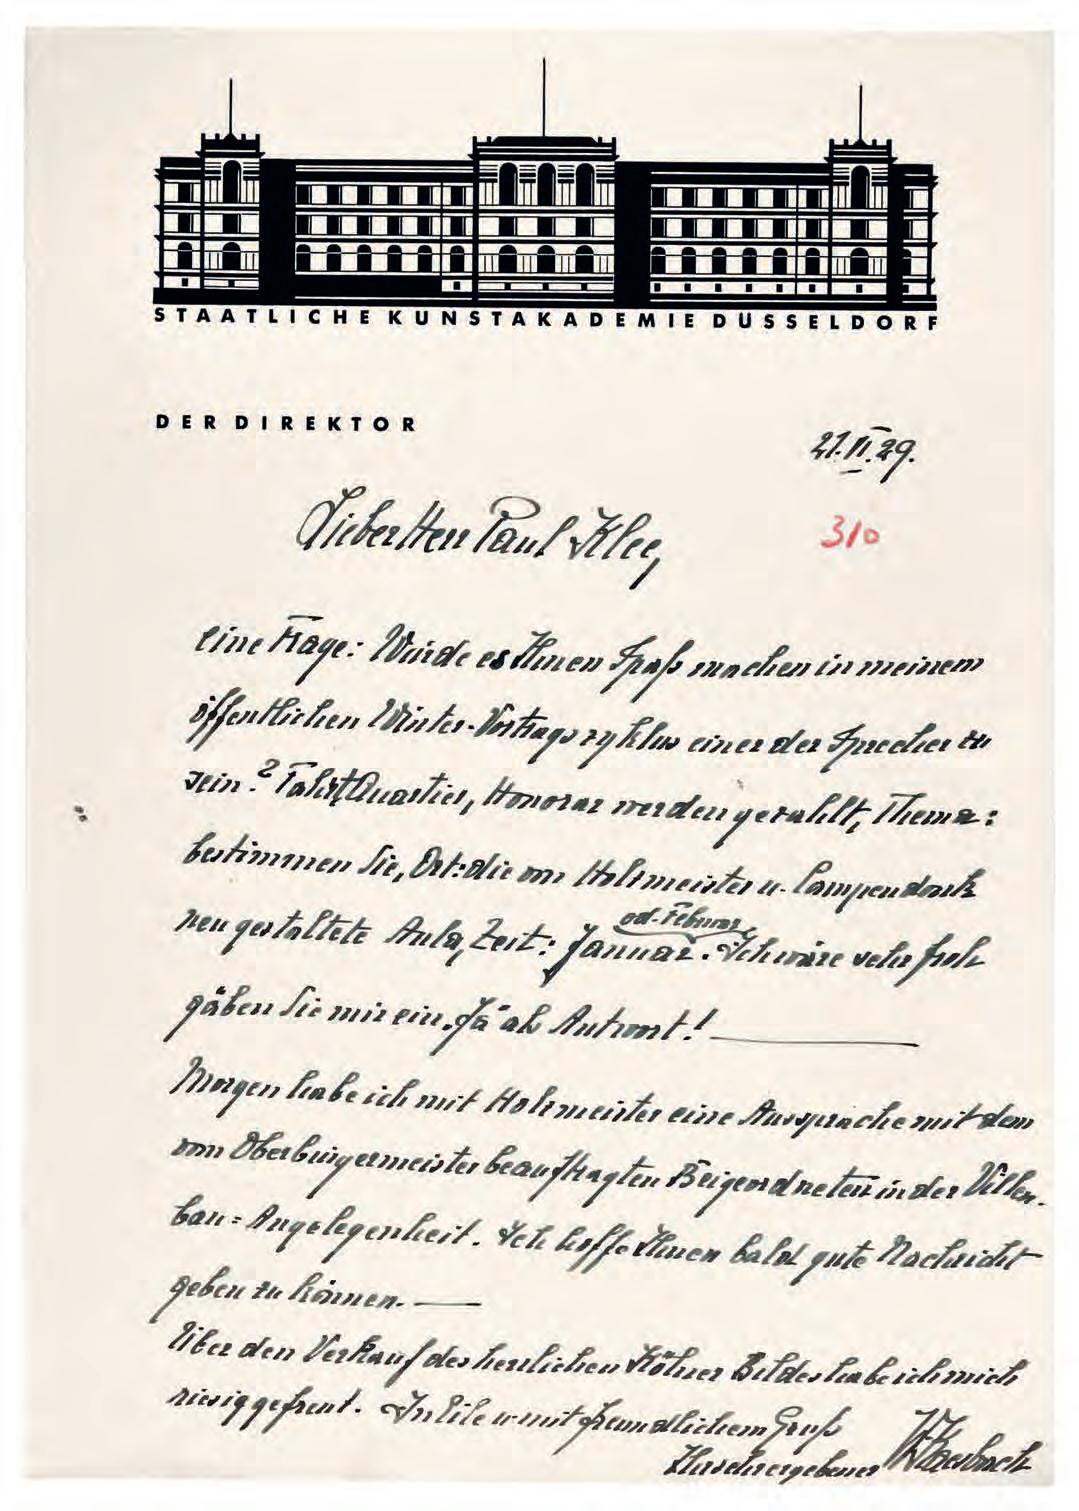 STAATLICHE KUNSTAKADEMIE DÜSSELDORF
DER DIREKTOR
21.II.29.
310
Lieber Herr Paul Klee,
eine Frage: Würde es Ihnen Spaß machen in meinem
öffentlichen Winter-Vortragszyklus einer der Sprecher zu
sein? Fahrt, Quartier, Honorar werden gezahlt, Thema:
bestimmen Sie, Ort: die von Holzmeister u. Campendonk
neu gestaltete Aula, Zeit: Januar od. Februar. Ich wäre sehr froh
gäben Sie mir ein „Ja" als Antwort!
Morgen habe ich mit Holzmeister eine Aussprache mit dem
vom Oberbürgermeister beauftragten Beigeordneten in der Villen-
bau=Angelegenheit. Ich hoffe Ihnen bald gute Nachricht
geben zu können.
Über den Verkauf des herrlichen Kölner Bildes habe ich mich
riesig gefreut. In Eile u. mit freundlichem Gruß
Ihr sehr ergebener W. Kaesbach